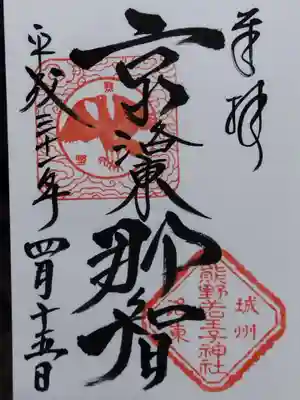 奉拝
京洛東
那智
平成二十一年四月十五日
城州
熊野若王子神社
洛東